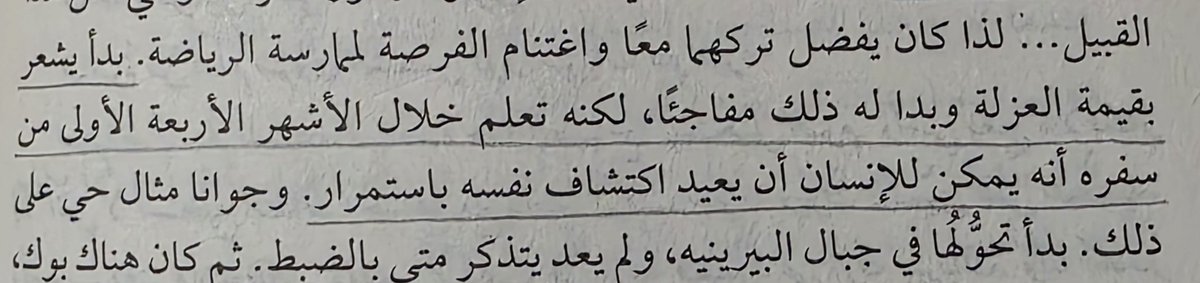 القبيل... لذا كان يفضل تركهما معًا واغتنام الفرصة لممارسة الرياضة. بدأ يشعر
بقيمة العزلة وبدا له ذلك مفاجئًا، لكنه تعلم خلال الأشهر الأربعة الأولى من
سفره أنه يمكن للإنسان أن يعيد اكتشاف نفسه باستمرار. وجوانا مثال حي على
ذلك. بدأ تحوُّلُها في جبال البيرينيه، ولم يعد يتذكر متى بالضبط. ثم كان هناك بوك،